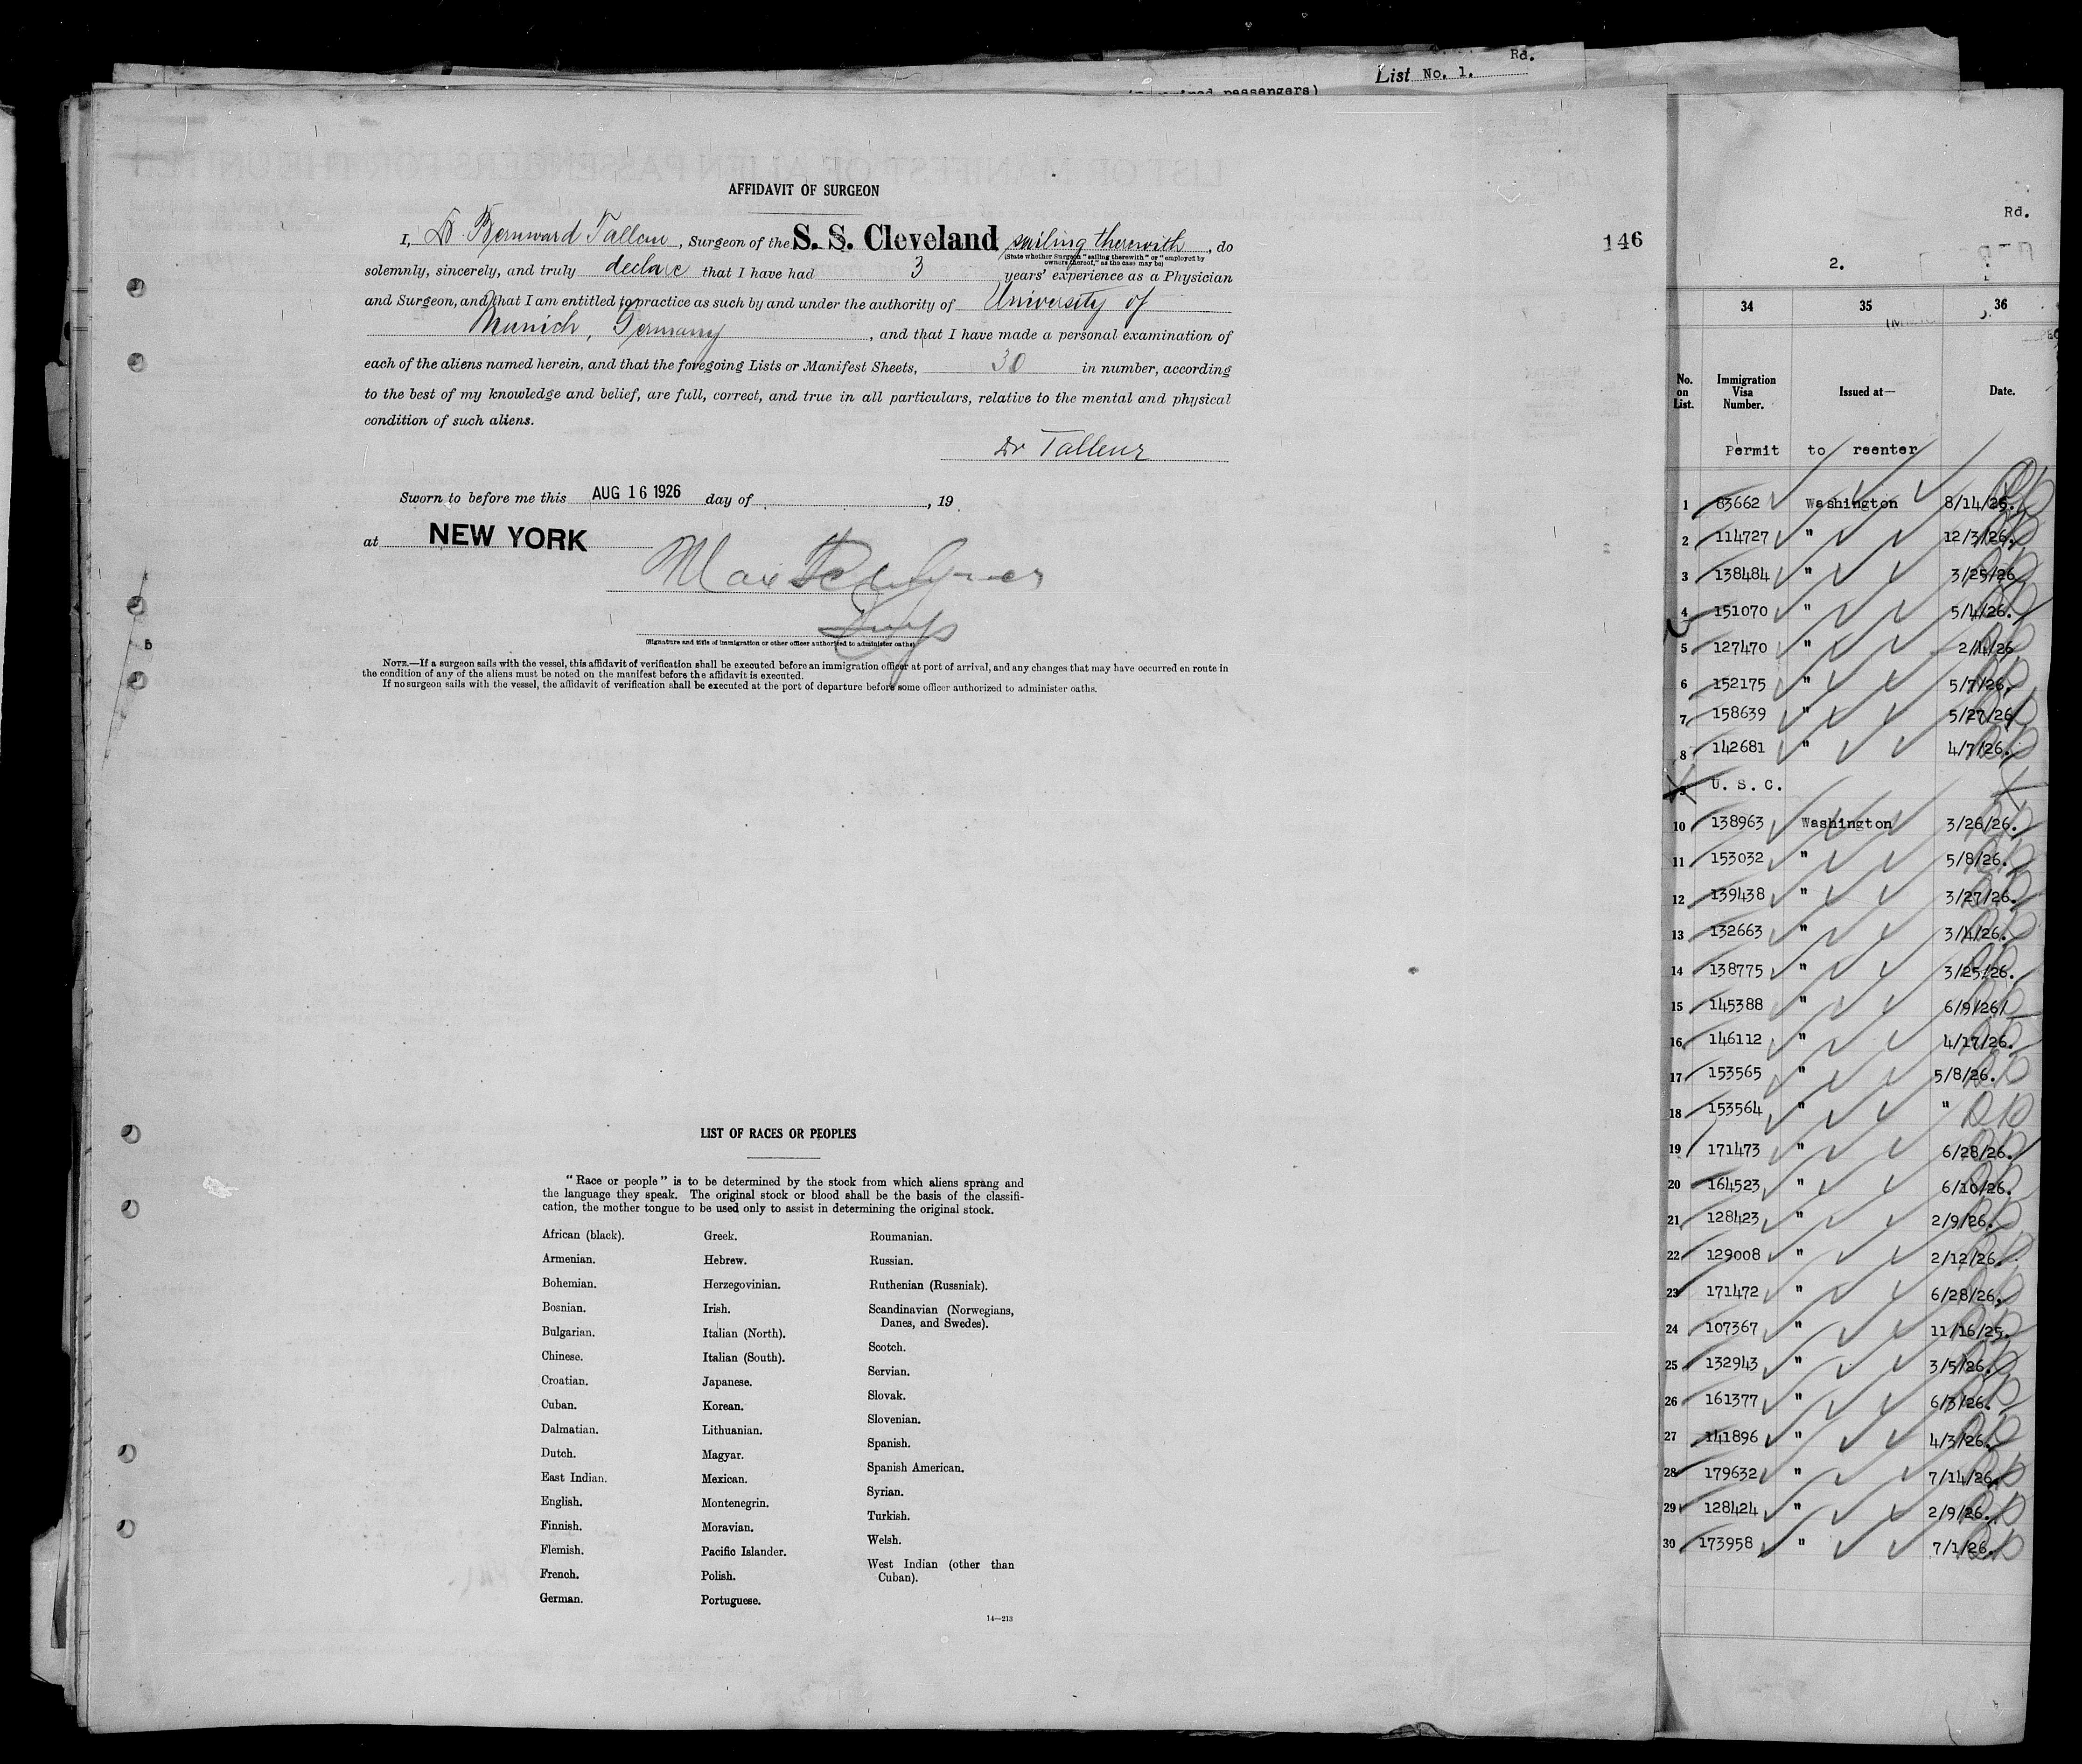 Rd.
List No. 1.
passengers)
AFFIDAVIT OF SURGEON
I, Dr. Bernward Talleur, Surgeon of the S. S. Cleveland sailing therewith, do
(State whether Surgeon "sailing therewith" or "employed by
owners thereof," as the case may be)
solemnly, sincerely, and truly declare that I have had 3 years' experience as a Physician
and Surgeon, and that I am entitled to practice as such by and under the authority of University of
Munich, Germany, and that I have made a personal examination of
each of the aliens named herein, and that the foregoing Lists or Manifest Sheets, 30 in number, according
to the best of my knowledge and belief, are full, correct, and true in all particulars, relative to the mental and physical
condition of such aliens.
Dr Talleur
Sworn to before me this AUG 16 1926 day of , 19 .
at NEW YORK
(Signature and title of immigration or other officer authorized to administer oaths)
NOTE.—If a surgeon sails with the vessel, this affidavit of verification shall be executed before an immigration officer at port of arrival, and any changes that may have occurred en route in
the condition of any of the aliens must be noted on the manifest before the affidavit is executed.
If no surgeon sails with the vessel, the affidavit of verification shall be executed at the port of departure before some officer authorized to administer oaths.
146
LIST OF RACES OR PEOPLES
"Race or people" is to be determined by the stock from which aliens sprang and
the language they speak. The original stock or blood shall be the basis of the classifi-
cation, the mother tongue to be used only to assist in determining the original stock.
African (black).
Armenian.
Bohemian.
Bosnian.
Bulgarian.
Chinese.
Croatian.
Cuban.
Dalmatian.
Dutch.
East Indian.
English.
Finnish.
Flemish.
French.
German.
Greek.
Hebrew.
Herzegovinian.
Irish.
Italian (North).
Italian (South).
Japanese.
Korean.
Lithuanian.
Magyar.
Mexican.
Montenegrin.
Moravian.
Pacific Islander.
Polish.
Portuguese.
Roumanian.
Russian.
Ruthenian (Russniak).
Scandinavian (Norwegians,
Danes, and Swedes).
Scotch.
Servian.
Slovak.
Slovenian.
Spanish.
Spanish American.
Syrian.
Turkish.
Welsh.
West Indian (other than
Cuban).
14—213
Rd.
2.
34 35 36
No. on List. Immigration Visa Number. Issued at— Date.
Permit to reenter
1 83662 Washington 8/14/25.
2 114727 " 12/3/26.
3 138484 " 3/25/26
4 151070 " 5/4/26.
5 127470 " 2/4/26
6 152175 " 5/7/26.
7 158639 " 5/27/26
8 142681 " 4/7/26.
9 U. S. C.
10 138963 Washington 3/26/26.
11 153032 " 5/8/26.
12 139438 " 3/27/26.
13 132663 " 3/4/26.
14 138775 " 3/25/26.
15 145388 " 6/9/26/
16 146112 " 4/17/26.
17 153565 " 5/8/26.
18 153564 " "
19 171473 " 6/28/26.
20 164523 " 6/10/26.
21 128423 " 2/9/26.
22 129008 " 2/12/26.
23 171472 " 6/28/26.
24 107367 " 11/16/25.
25 132943 " 3/5/26.
26 161377 " 6/3/26.
27 141896 " 4/3/26.
28 179632 " 7/14/26.
29 128424 " 2/9/26.
30 173958 " 7/1/26.